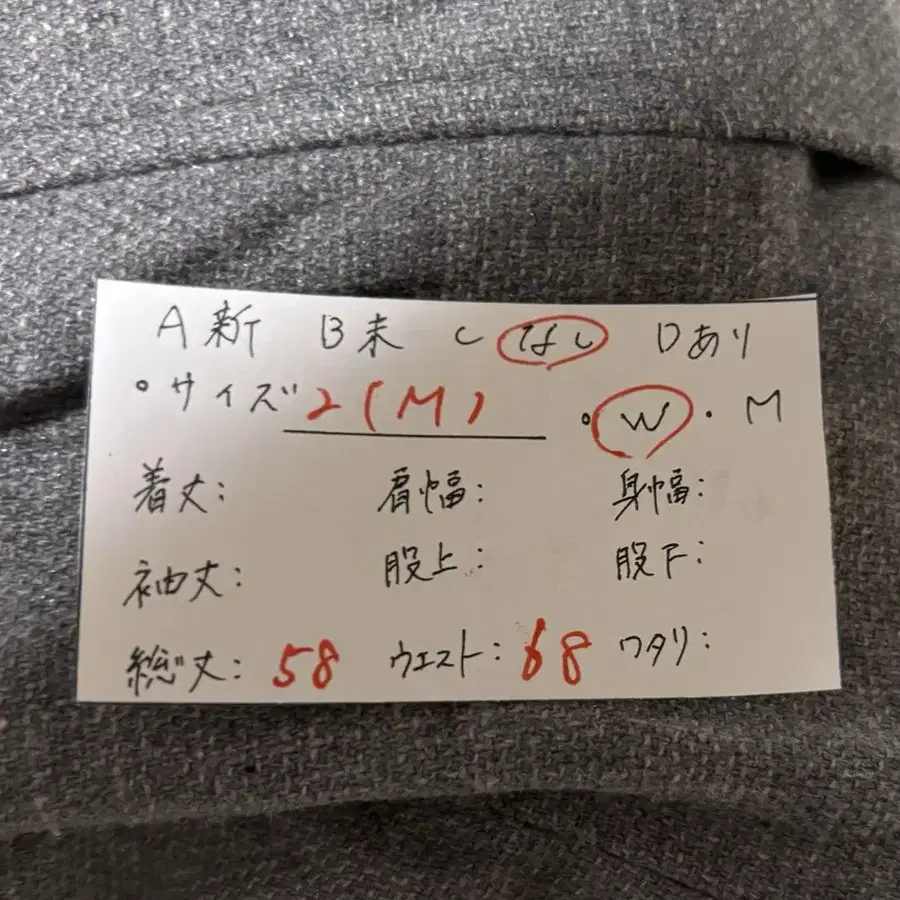 A新 B未 Cなし Dあり
・サイズ 2(M) ・W・M
着丈: 肩幅: 身幅:
袖丈: 股上: 股下:
総丈: 58 ウエスト: 68 ワタリ: